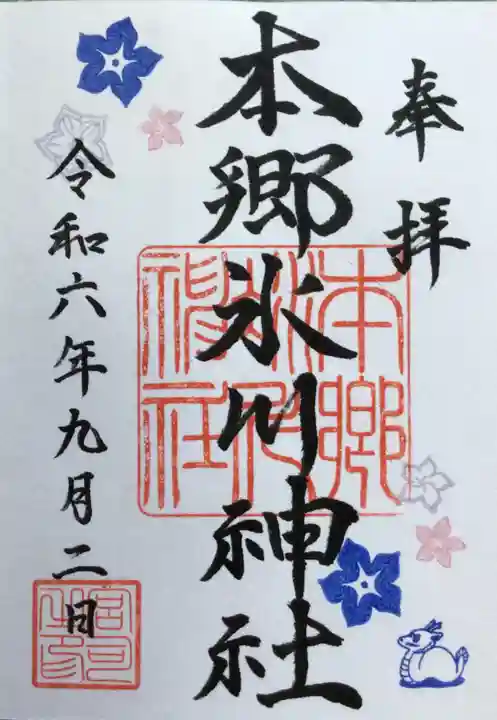 奉拝
本郷氷川神社
令和六年九月二日
本郷
氷川
神社